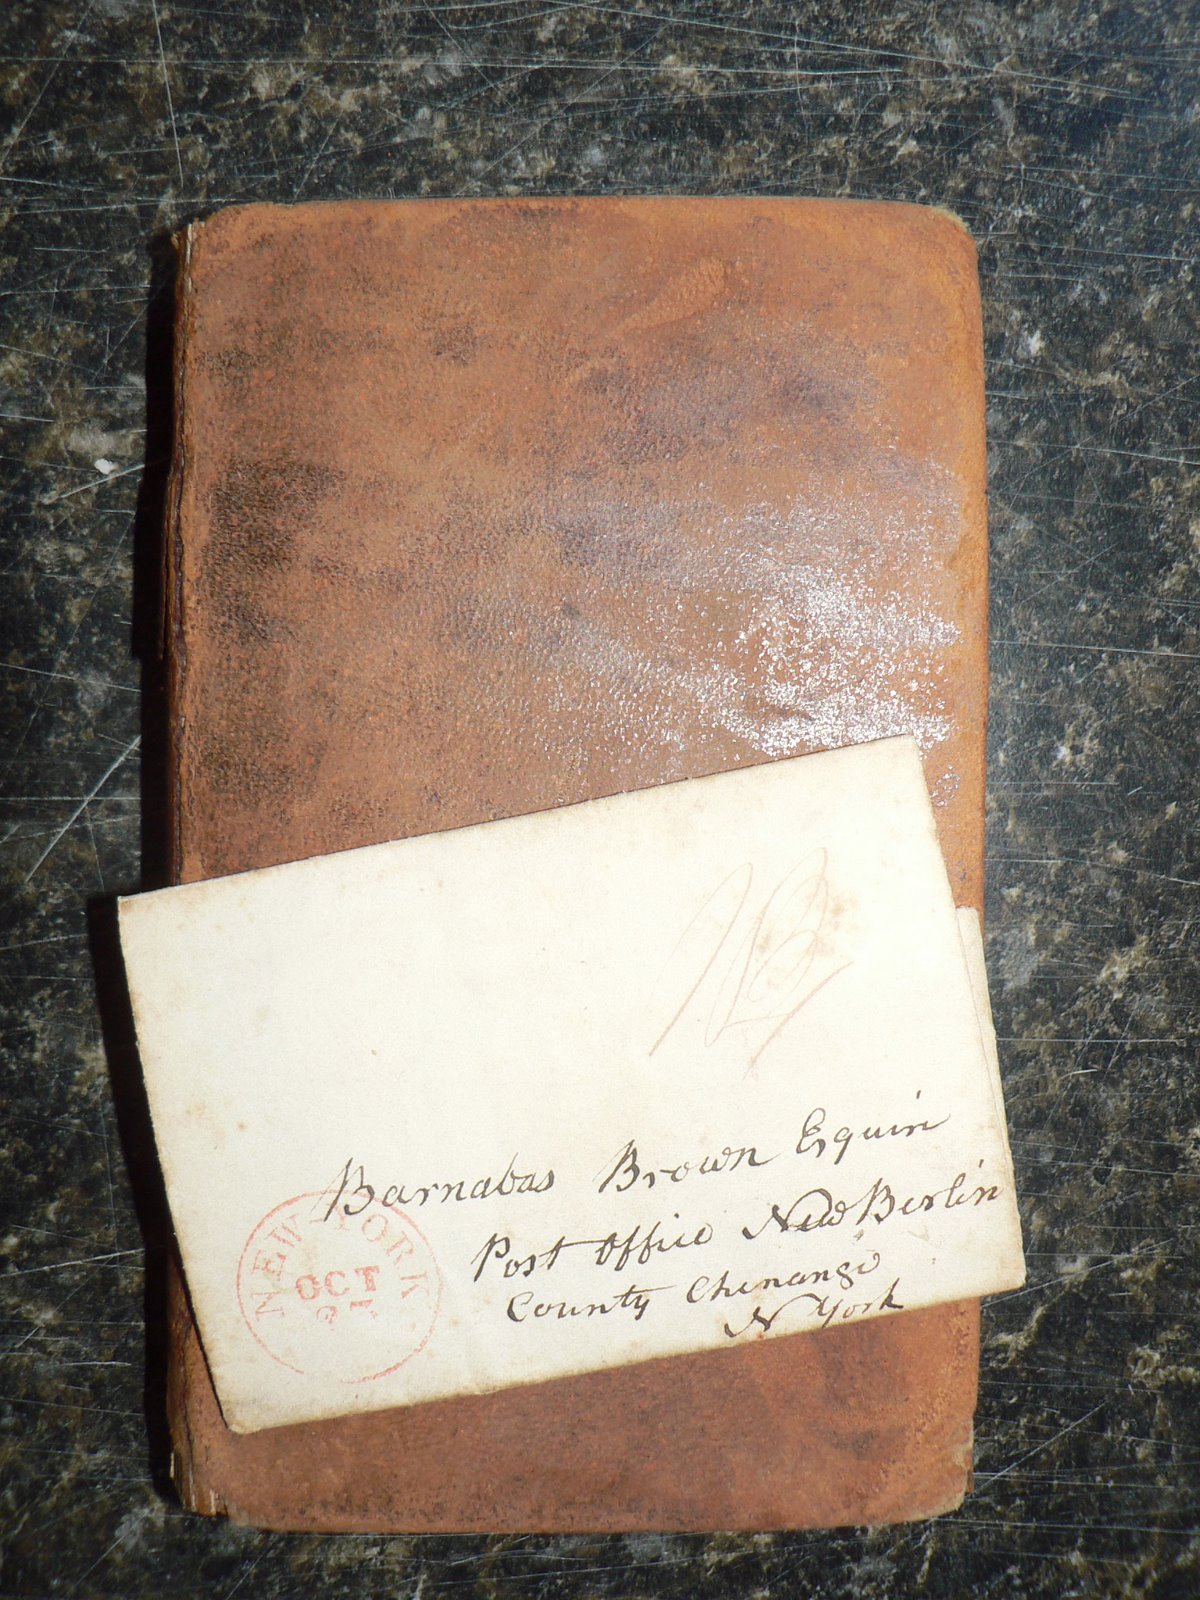 Barnabas Brown Esquire
Post Office New Berlin
County Chenango
N York
NEW-YORK
OCT